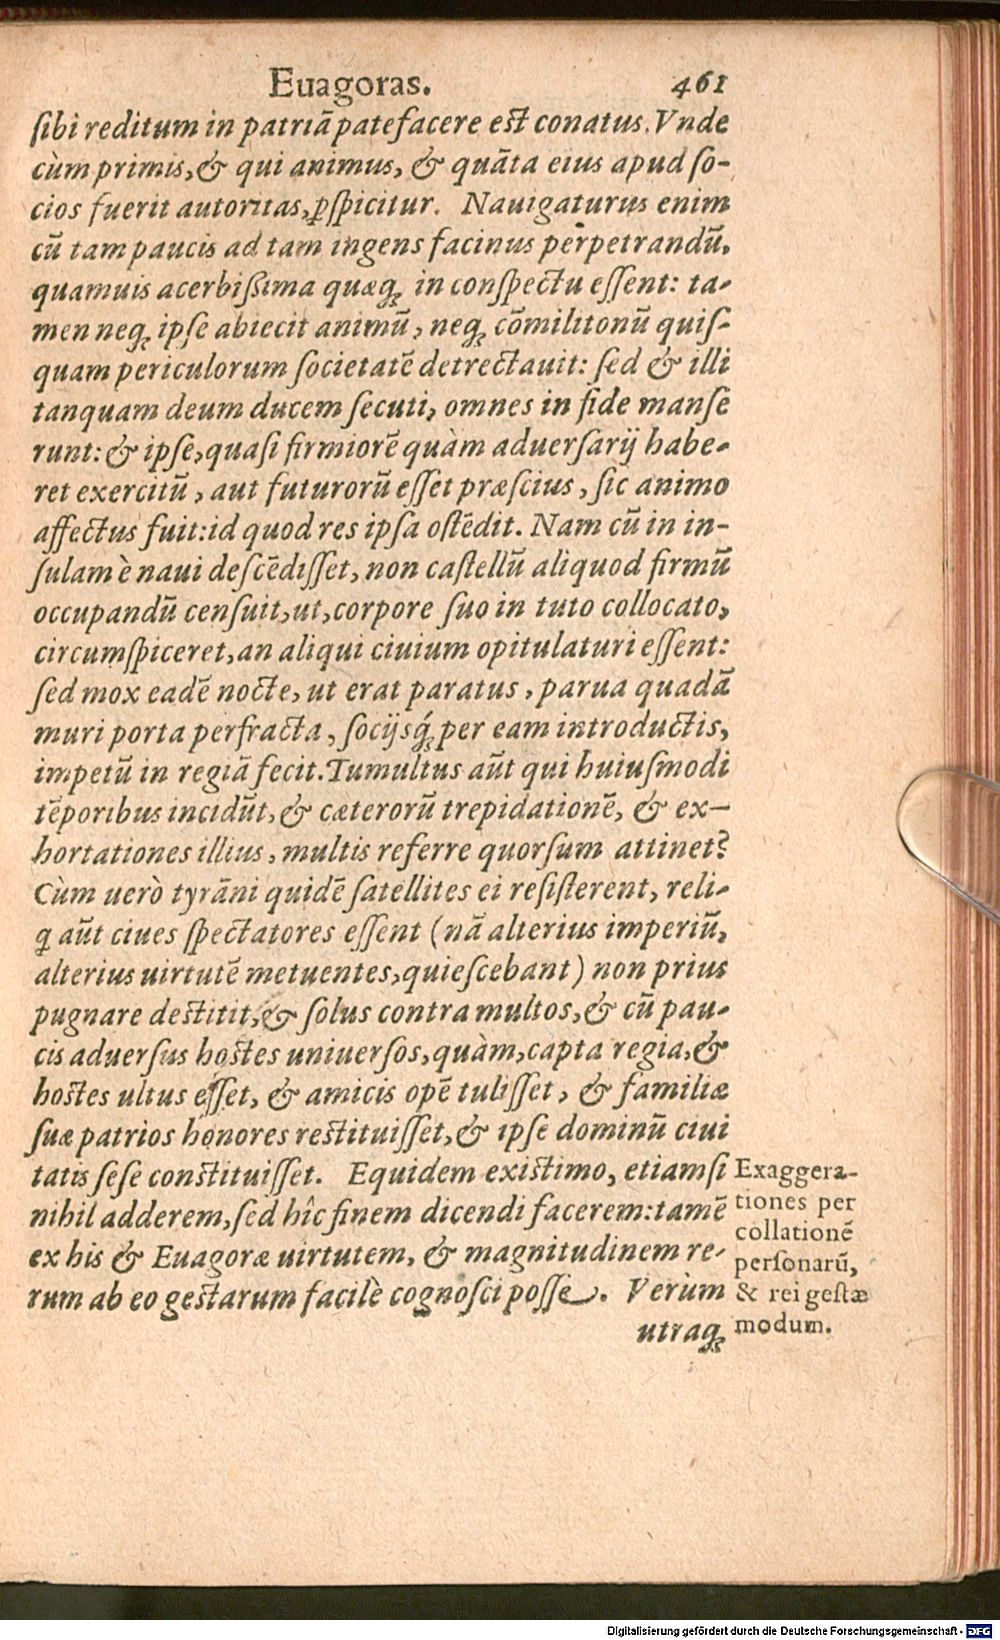 Euagoras. 461
ſibi reditum in patriā patefacere est conatus. Vnde
cùm primis, & qui animus, & quāta eius apud ſo-
cios fuerit autoritas, ꝑſpicitur. Nauigaturus enim
cū tam paucis ad tam ingens facinus perpetrandū,
quamuis acerbißima quæq; in conſpectu eſſent: ta-
men neq; ipſe abiecit animū, neq; cōmilitonū quiſ-
quam periculorum ſocietatē detrectauit: ſed & illi
tanquam deum ducem ſecuti, omnes in fide manſe
runt: & ipſe, quaſi firmiorē quàm aduerſarij habe-
ret exercitū, aut futurorū eſſet præſcius, ſic animo
affectus fuit: id quod res ipſa oſtēdit. Nam cū in in-
ſulam è naui deſcēdiſſet, non caſtellū aliquod firmū
occupandū cenſuit, ut, corpore ſuo in tuto collocato,
circumſpiceret, an aliqui ciuium opitulaturi eſſent:
ſed mox eadē nocte, ut erat paratus, parua quadā
muri porta perfracta, ſocijsq́; per eam introductis,
impetū in regiā fecit. Tumultus aūt qui huiuſmodi
tēporibus incidūt, & cæterorū trepidationē, & ex-
hortationes illius, multis referre quorſum attinet?
Cùm uerò tyrāni quidē ſatellites ei reſiſterent, reli-
q aūt ciues ſpectatores eſſent (nā alterius imperiū,
alterius uirtutē metuentes, quieſcebant) non prius
pugnare destitit, & ſolus contra multos, & cū pau-
cis aduerſus hostes uniuerſos, quàm, capta regia, &
hostes ultus eſſet, & amicis opē tuliſſet, & familiæ
ſuæ patrios honores restituiſſet, & ipſe dominū ciui
tatis ſeſe constituiſſet. Equidem existimo, etiamſi
nihil adderem, ſed hîc finem dicendi facerem: tamē
ex his & Euagoræ uirtutem, & magnitudinem re-
rum ab eo gestarum facilè cognoſci poſſe. Verùm
utraq;
Exaggera-
tiones per
collationē
perſonarū,
& rei geſtæ
modum.
Digitalisierung gefördert durch die Deutsche Forschungsgemeinschaft - DFG